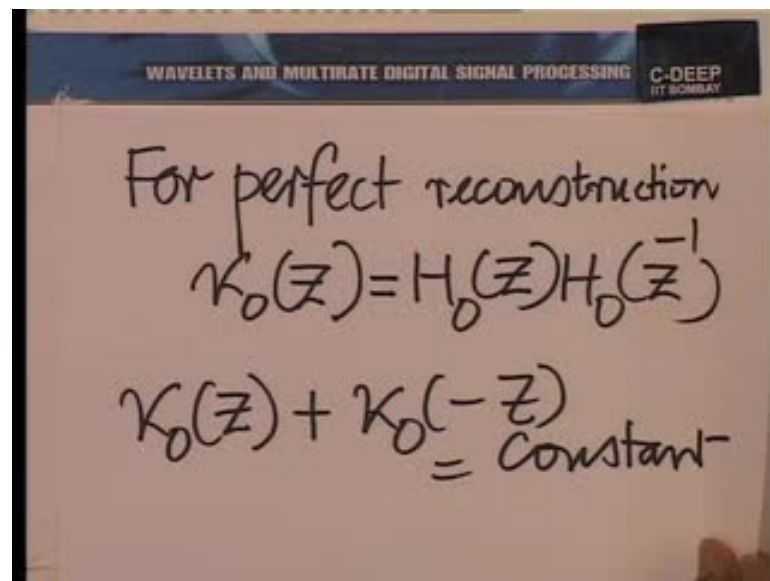 WAVELETS AND MULTIRATE DIGITAL SIGNAL PROCESSING
C-DEEP
IIT BOMBAY
For perfect reconstruction
K₀(Z)=H₀(Z)H₀(Z⁻¹)
K₀(Z)+K₀(-Z)
= Constant